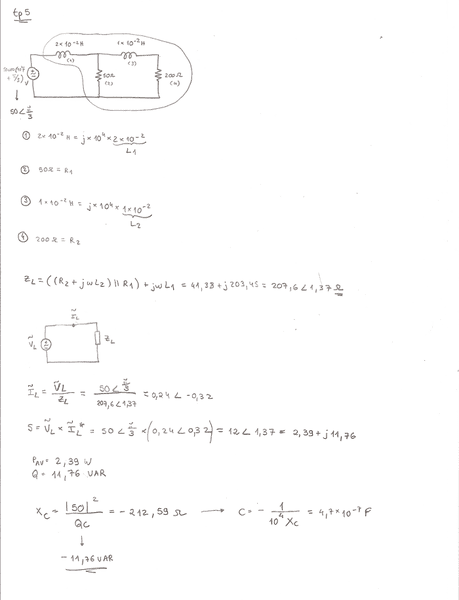 tp5
2×10⁻²H 1×10⁻²H
(1) (3)
50Ω 200Ω
(2) (4)
+ π/3) V
50∠π/3
① 2×10⁻² H = j×10⁴×2×10⁻²
L1
② 50Ω = R1
③ 1×10⁻² H = j×10⁴×1×10⁻²
L2
④ 200Ω = R2
ZL = ((R2 + jωL2) || R1) + jωL1 = 41,38 + j203,45 = 207,6∠1,37 Ω
ĨL
ṼL ZL
ĨL = ṼL/ZL = 50∠π/3 / 207,6∠1,37 = 0,24∠-0,32
S = ṼL × ĨL* = 50∠π/3 × (0,24∠0,32) = 12∠1,37 = 2,39 + j11,76
PAV = 2,39 W
Q = 11,76 VAR
XC = |50|²/QC = -212,59 Ω → C = - 1/10⁴XC = 4,7×10⁻⁷ F
-11,76 VAR